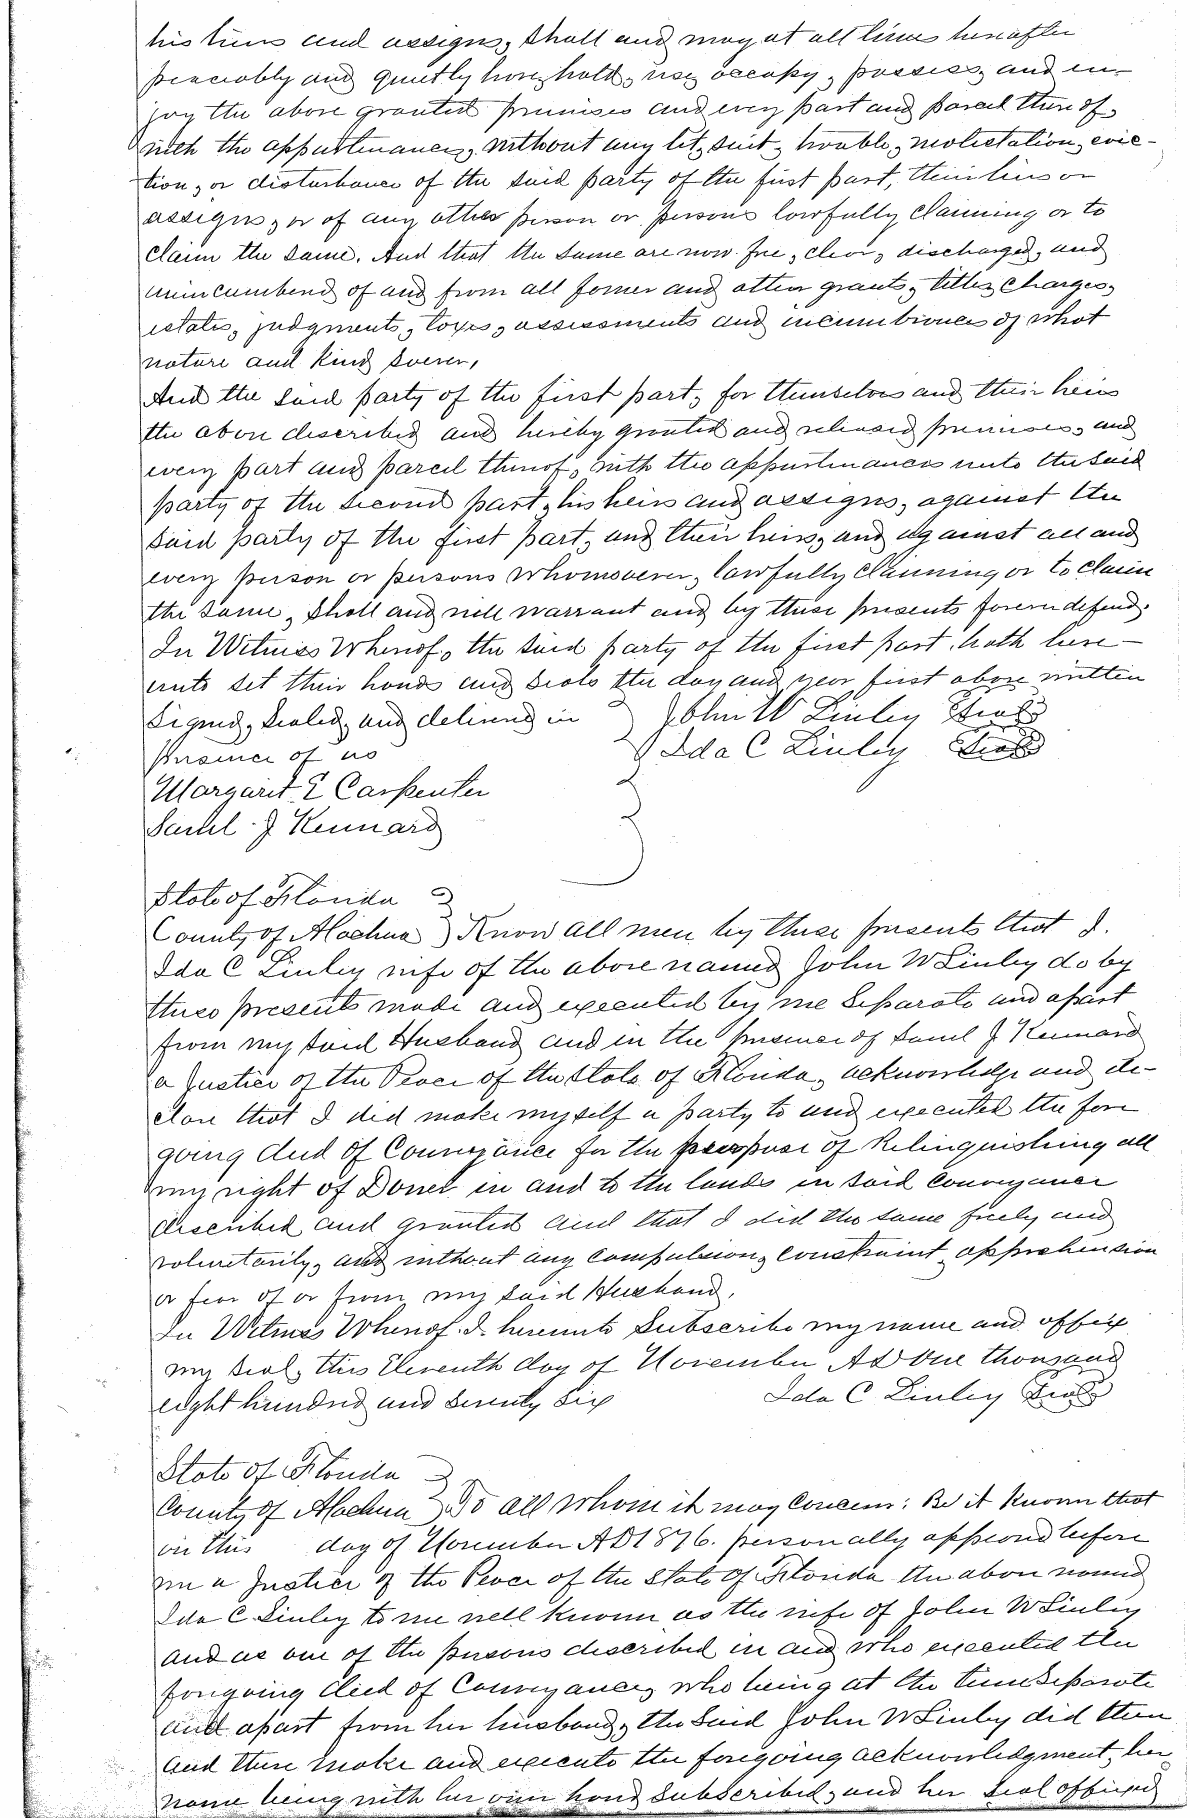 his heirs and assigns, shall and may at all times hereafter
peaceably and quietly have, hold, use, occupy, possess, and en-
joy the above granted premises and every part and parcel thereof,
with the appurtenances, without any let, suit, trouble, molestation, evic-
tion, or disturbance of the said party of the first part, their heirs or
assigns, or of any other person or persons lawfully claiming or to
claim the same. And that the same are now free, clear, discharged, and
unincumbered of and from all former and other grants, titles, charges,
estates, judgments, taxes, assessments and incumbrances of what
nature and kind soever,
And the said party of the first part, for themselves and their heirs
the above described and hereby granted and released premises, and
every part and parcel thereof, with the appurtenances unto the said
party of the second part, his heirs and assigns, against the
said party of the first part, and their heirs, and against all and
every person or persons whomsoever, lawfully claiming or to claim
the same, shall and will warrant and by these presents forever defend.
In Witness Whereof, the said party of the first part, hath here-
unto set their hands and seals the day and year first above written
Signed, Sealed, and delivered in } John W Linley Seal
presence of us } Ida C Linley Seal
Margaret E Carpenter
Saml. J Kennard
State of Florida }
County of Alachua } Know all men by these presents that I.
Ida C Linley wife of the above named John W Linley do by
these presents made and executed by me Separate and apart
from my said Husband and in the presence of Saml J Kennard
a Justice of the Peace of the State of Florida, acknowledge and de-
clare that I did make myself a party to and executed the fore
going deed of Conveyance for the purpose of Relinquishing all
my right of Dower in and to the lands in said Conveyance
described and granted and that I did the same freely and
voluntarily, and without any compulsion, constraint, apprehension
or fear of or from my said Husband.
In Witness Whereof. I hereunto Subscribe my name and affix
my seal, this Eleventh day of November AD One thousand
eight hundred and seventy six Ida C Linley Seal
State of Florida }
County of Alachua } To all whom it may Concern: Be it Known that
on this day of November AD 1876. personally appeared before
me a Justice of the Peace of the State of Florida the above named
Ida C. Linley to me well known as the wife of John W Linley
and as one of the persons described in and who executed the
foregoing deed of Conveyance, who being at the time Separate
and apart from her husband, the Said John W Linley did then
and there make and execute the foregoing acknowledgment, her
name being with her own hand subscribed, and her seal affixed